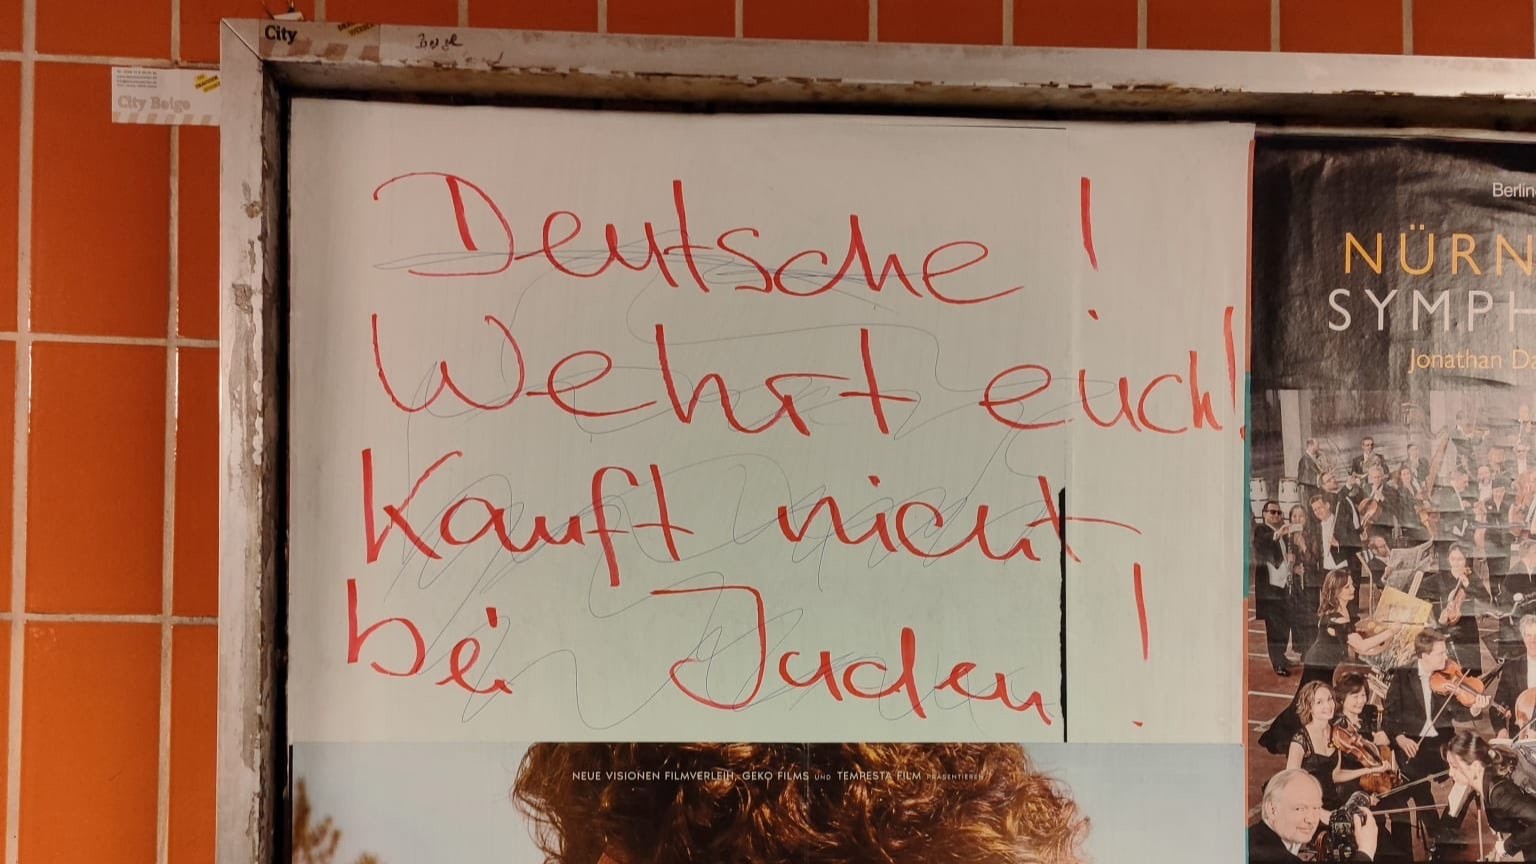 City
City Beige
Deutsche!
Wehrt euch!
Kauft nicht
bei Juden!
NEUE VISIONEN FILMVERLEIH, GEKO FILMS UND TEMPESTA FILM PRÄSENTIEREN
Berlin
NÜRN
SYMPH
Jonathan Da